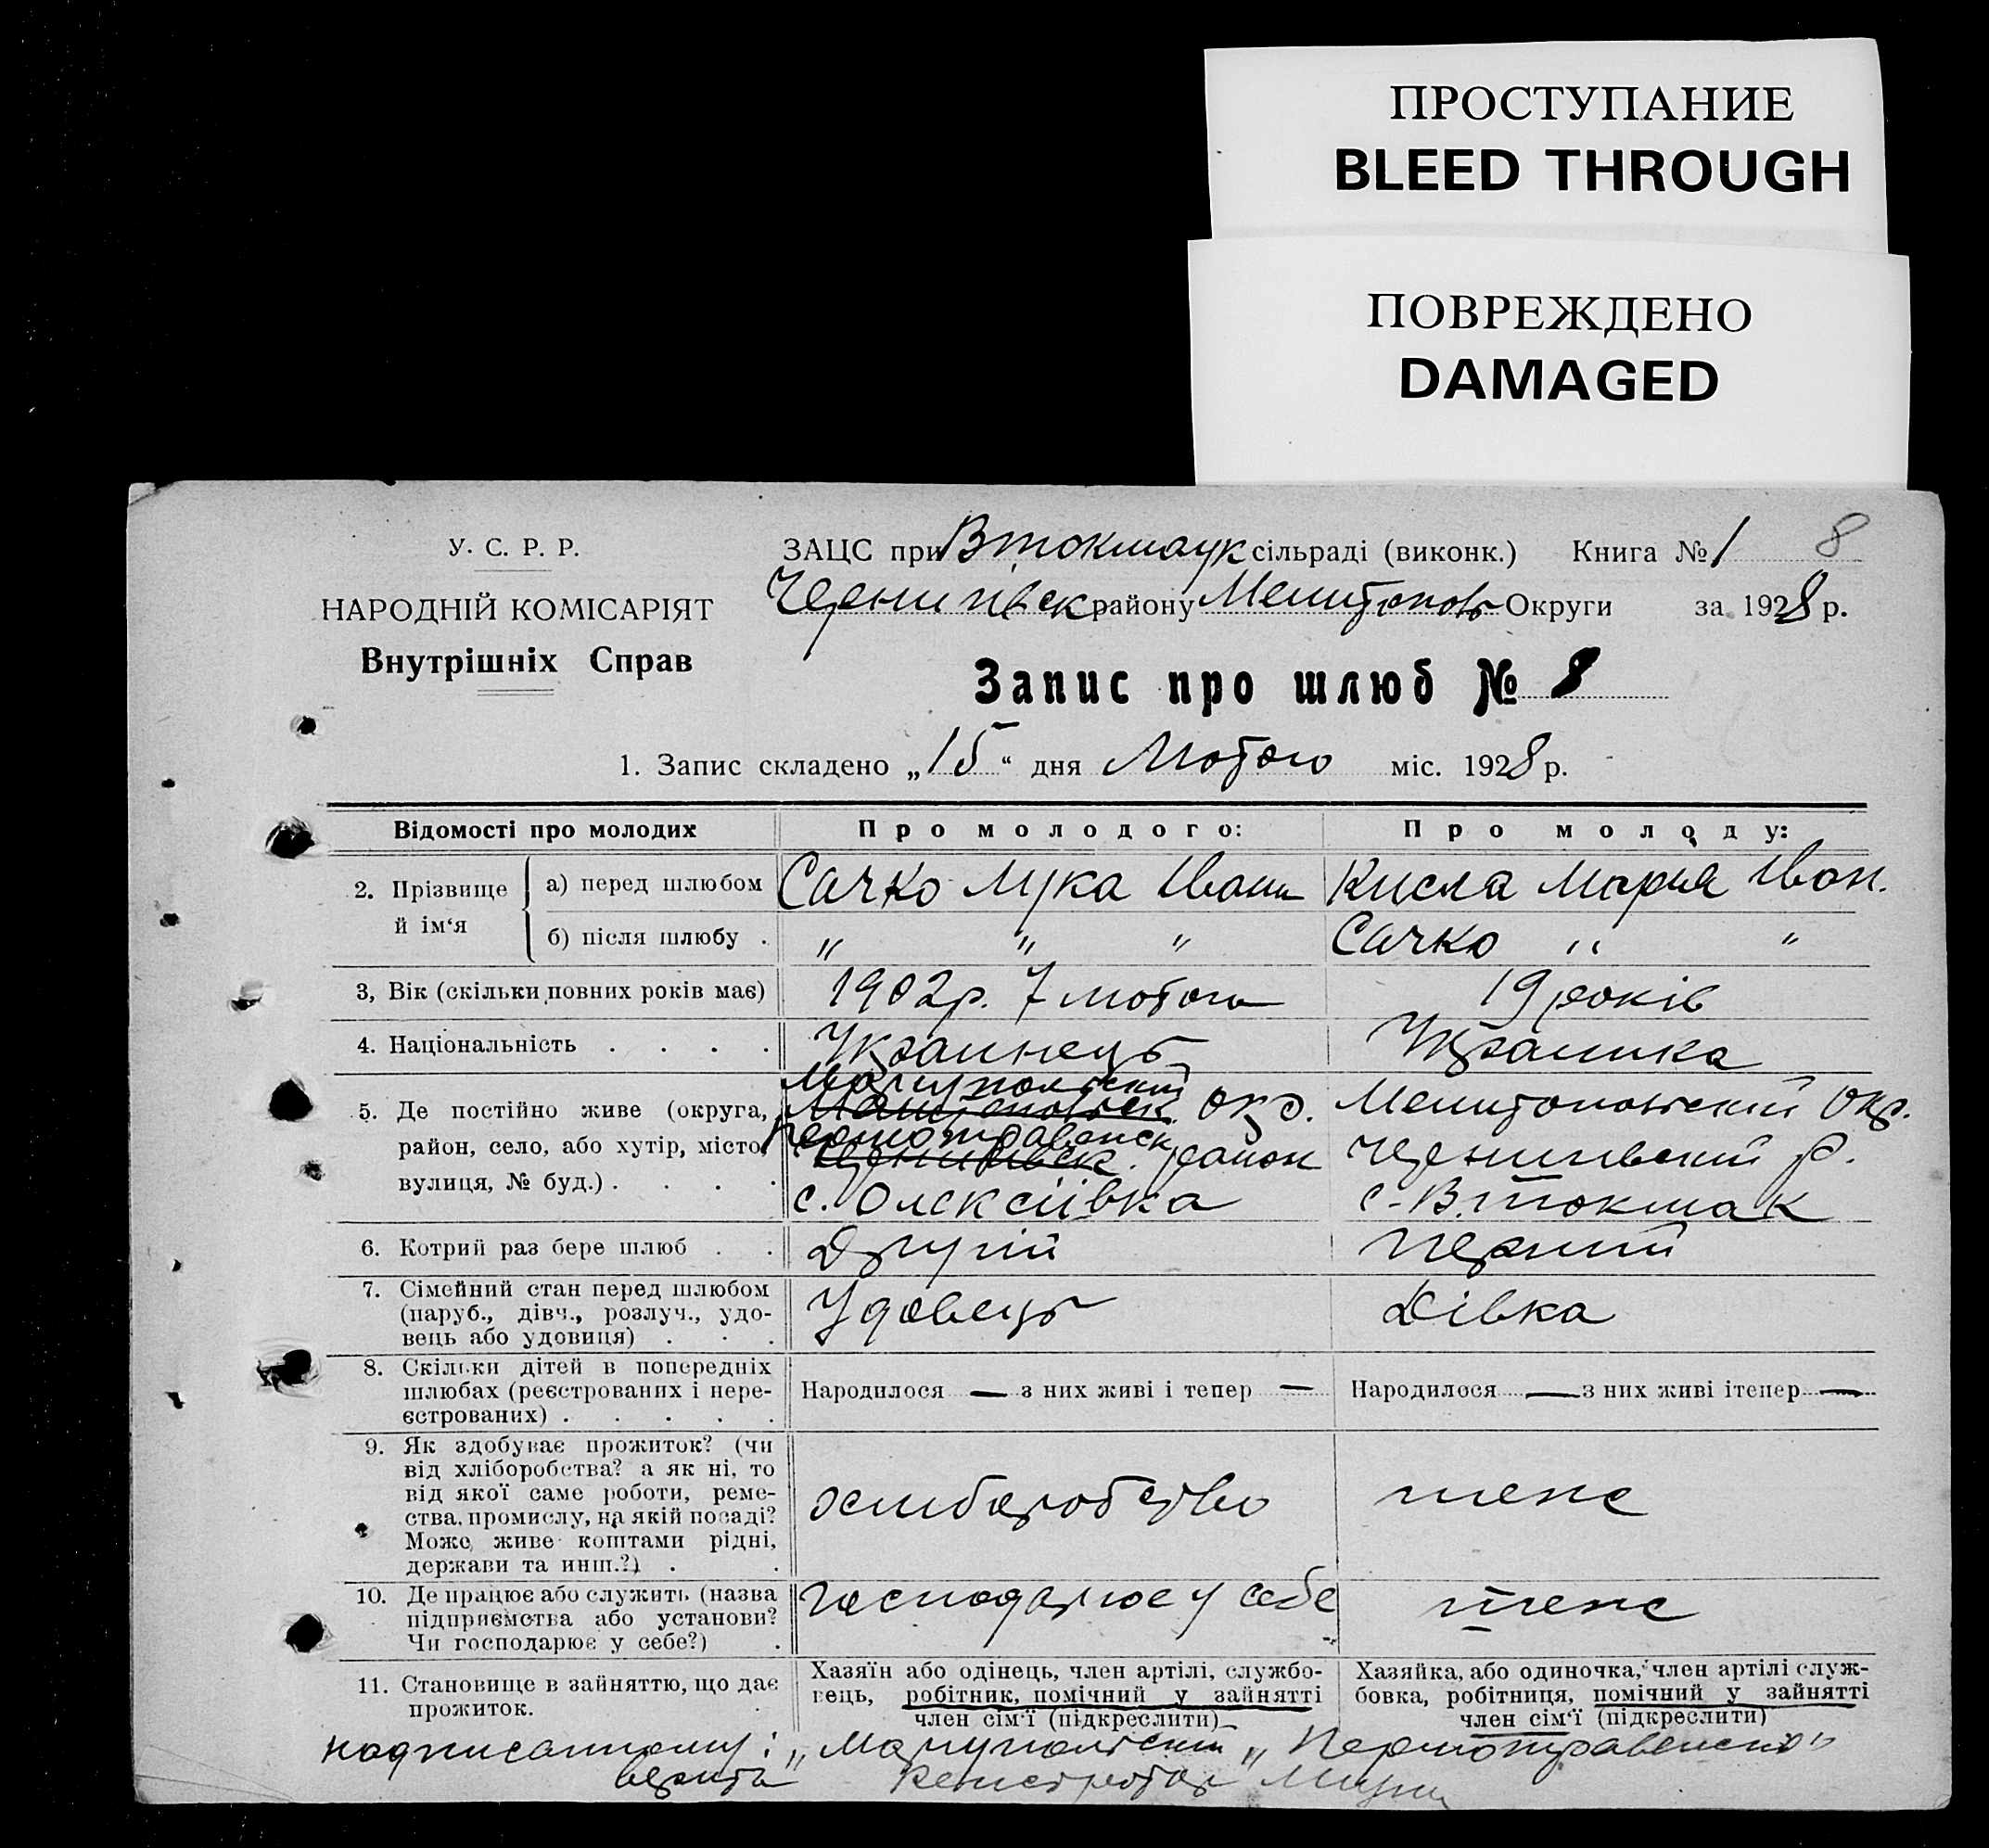 ПРОСТУПАНИЕ
BLEED THROUGH
ПОВРЕЖДЕНО
DAMAGED
У. С. Р. Р.
НАРОДНІЙ КОМІСАРІЯТ
Внутрішніх Справ
ЗАЦС при В токмаук сільраді (виконк.) Книга № 1 8
Чернигівск району Мелитопов Округи за 1928 р.
Запис про шлюб № 8
1. Запис складено „15“ дня Лютого міс. 1928 р.
Відомості про молодих Про молодого: Про молоду:
2. Прізвище й ім‘я
а) перед шлюбом Сачко Лука Іван Кисла Мария Іван.
б) після шлюбу . „ „ „ Сачко „ „
3, Вік (скільки повних років має) 1902р. 7 лютого 19 років
4. Національність . . . . Українець Українка
5. Де постійно живе (округа, район, село, або хутір, місто, вулиця, № буд.) . . . .
Мариупольский
Мелитопольск. окр.
Першотравенск
Чернигівск. район
с. Олексіївка
Мелитопольский Окр.
Чернигивский р.
с. В. Токмак
6. Котрий раз бере шлюб . . Другий Перший
7. Сімейний стан перед шлюбом
(паруб., дівч., розлуч., удо-
вець або удовиця) . . . Удовець Дівка
8. Скільки дітей в попередніх
шлюбах (реєстрованих і нере-
єстрованих) . . . . .
Народилося — з них живі і тепер —
Народилося — з них живі і тепер —
9. Як здобуває прожиток? (чи
від хліборобства? а як ні, то
від якої саме роботи, реме-
ства, промислу, на якій посаді?
Може живе коштами рідні,
держави та инш.?) . .
хлиборобство теже
10. Де працює або служить (назва
підприємства або установи?
Чи господарює у себе?) .
господарює у себе теже
11. Становище в зайняттю, що дає
прожиток.
Хазяїн або одінець, член артілі, службо-
вець, робітник, помічний у зайнятті
член сім‘ї (підкреслити)
Хазяйка, або одиночка, член артілі служ-
бовка, робітниця, помічний у зайнятті
член сім‘ї (підкреслити)
надписанному: „Мариупольский „Першотравенский"
верить Регистратор